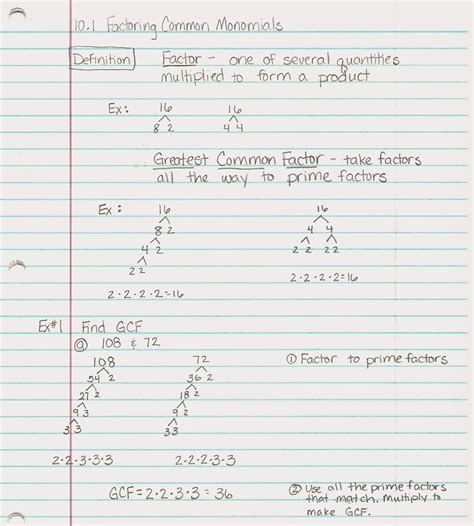 10.1 Factoring Common Monomials
Definition Factor - one of several quantities
multiplied to form a product
Ex: 16 16
8 2 4 4
Greatest Common Factor - take factors
all the way to prime factors
Ex: 16 16
8 2 4 4
4 2 2 2 2 2
2 2
2·2·2·2=16
2·2·2·2=16
Ex#1 Find GCF
ⓐ 108 & 72
108 72 ① Factor to prime factors
54 2 36 2
27 2 18 2
9 3 9 2
3 3 3 3
2·2·3·3·3 2·2·2·3·3
GCF=2·2·3·3=36 ② Use all the prime factors
that match. Multiply to
make GCF.